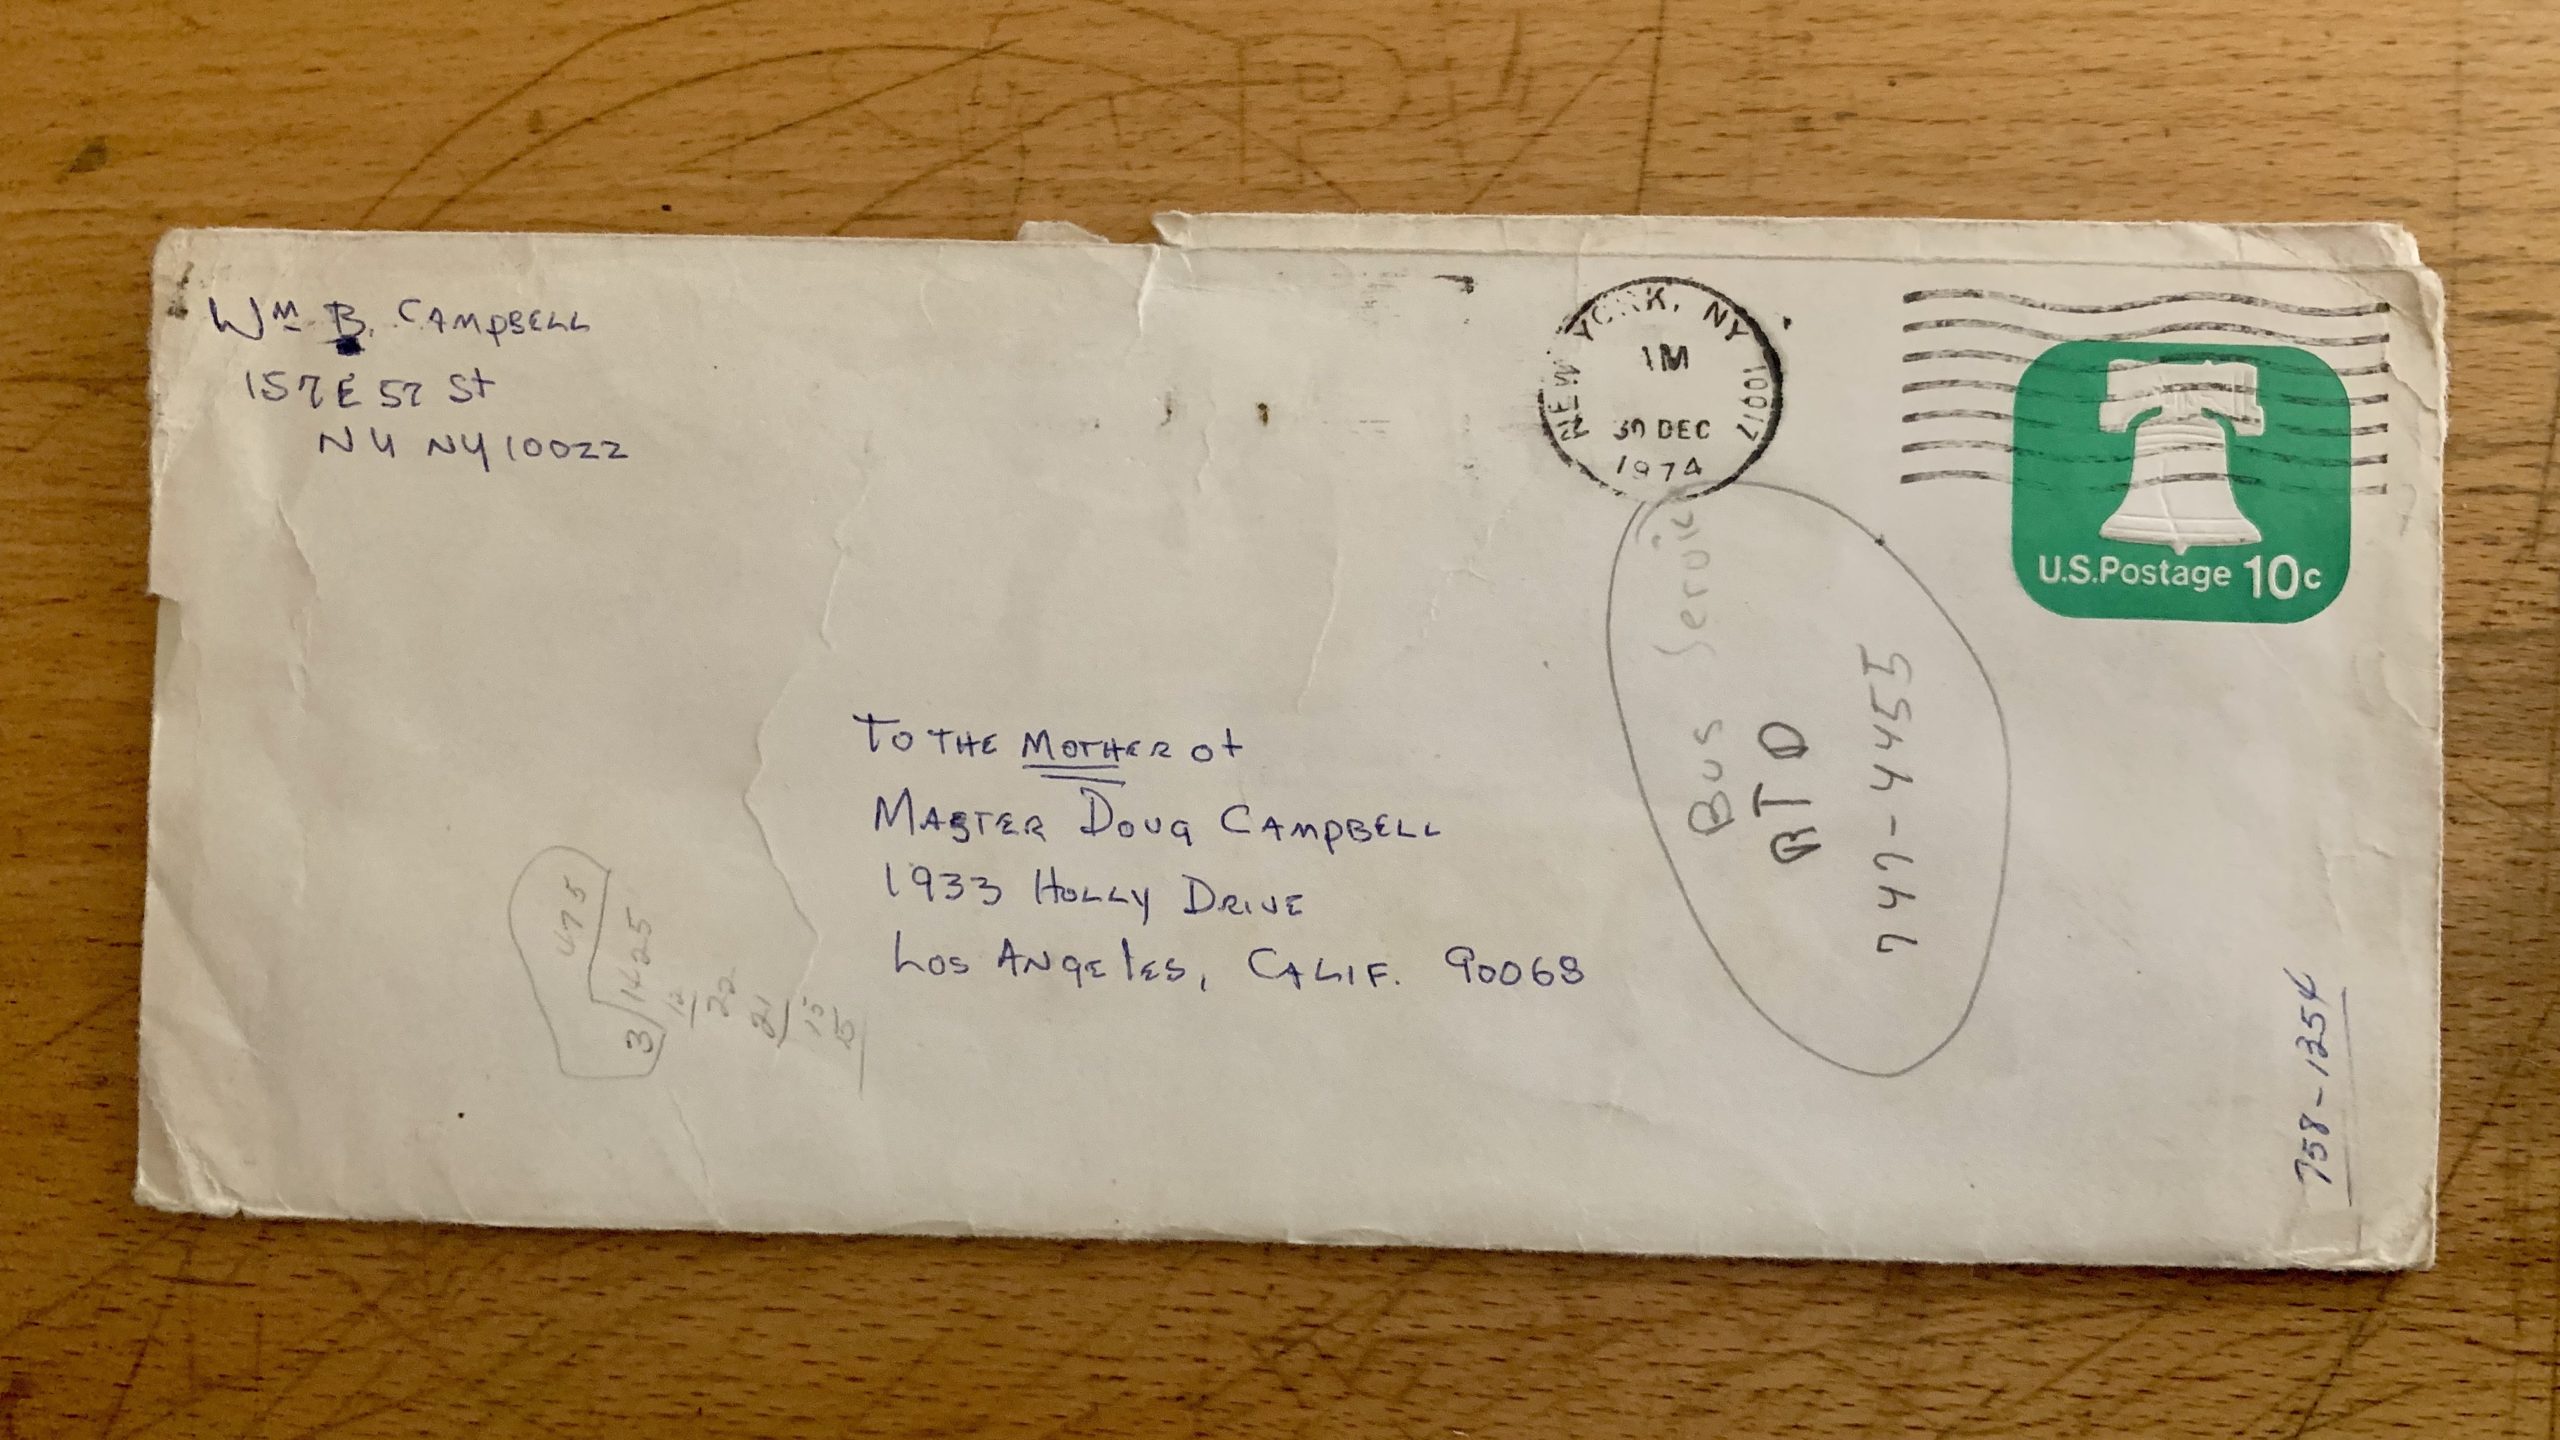 Wm B. CAMPBELL
157 E 57 St
NY NY 10022
NEW YORK, NY 10017
1M
30 DEC
1974
U.S.Postage 10c
TO THE MOTHER of
MASTER DOUG CAMPBELL
1933 HOLLY DRIVE
LOS ANGELES, CALIF. 90068
Bus Service
RTD
747-4455
758-1254
475
3 1425
12
22
21
15
15